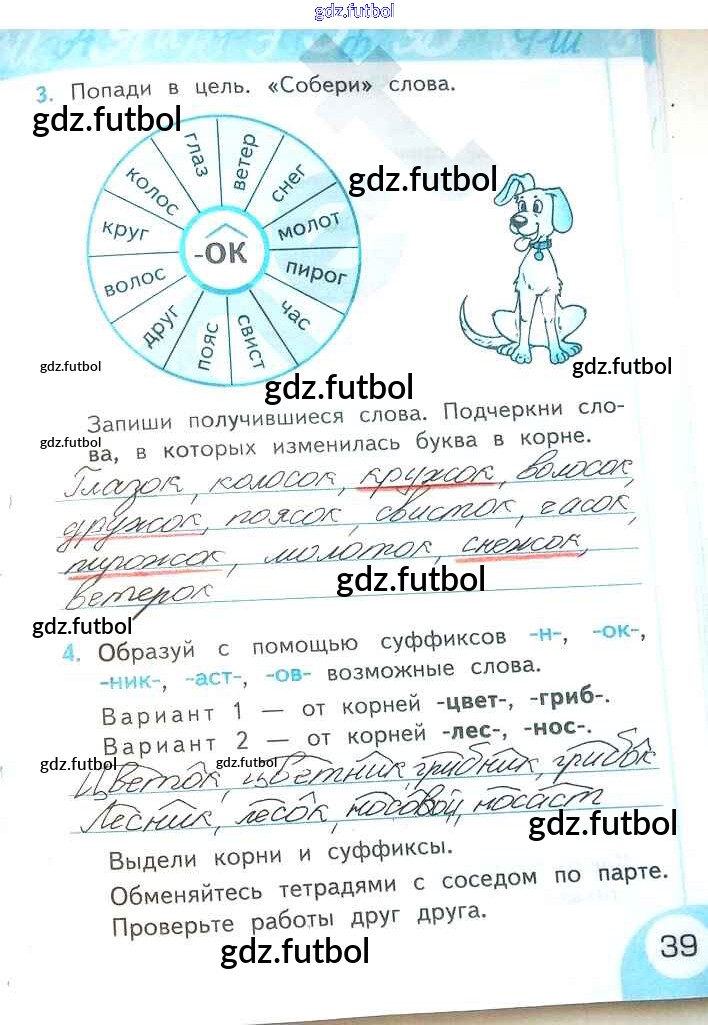 gdz.futbol
3. Попади в цель. «Собери» слова.
gdz.futbol
глаз
ветер
снег
gdz.futbol
колос
молот
круг
-ок
пирог
волос
час
друг
пояс
свист
gdz.futbol
gdz.futbol
gdz.futbol
Запиши получившиеся слова. Подчеркни сло-
gdz.futbol
ва, в которых изменилась буква в корне.
Глазок, колосок, кружок, волосок,
дружок, поясок, свисток, часок,
пирожок, молоток, снежок,
gdz.futbol
ветерок
gdz.futbol
4. Образуй с помощью суффиксов -н-, -ок-,
-ник-, -аст-, -ов- возможные слова.
Вариант 1 — от корней -цвет-, -гриб-.
Вариант 2 — от корней -лес-, -нос-.
gdz.futbol
gdz.futbol
Цветок, цветник, грибник, грибок
Лесник, лесок, носовой, носаст
gdz.futbol
Выдели корни и суффиксы.
Обменяйтесь тетрадями с соседом по парте.
Проверьте работы друг друга.
gdz.futbol
39